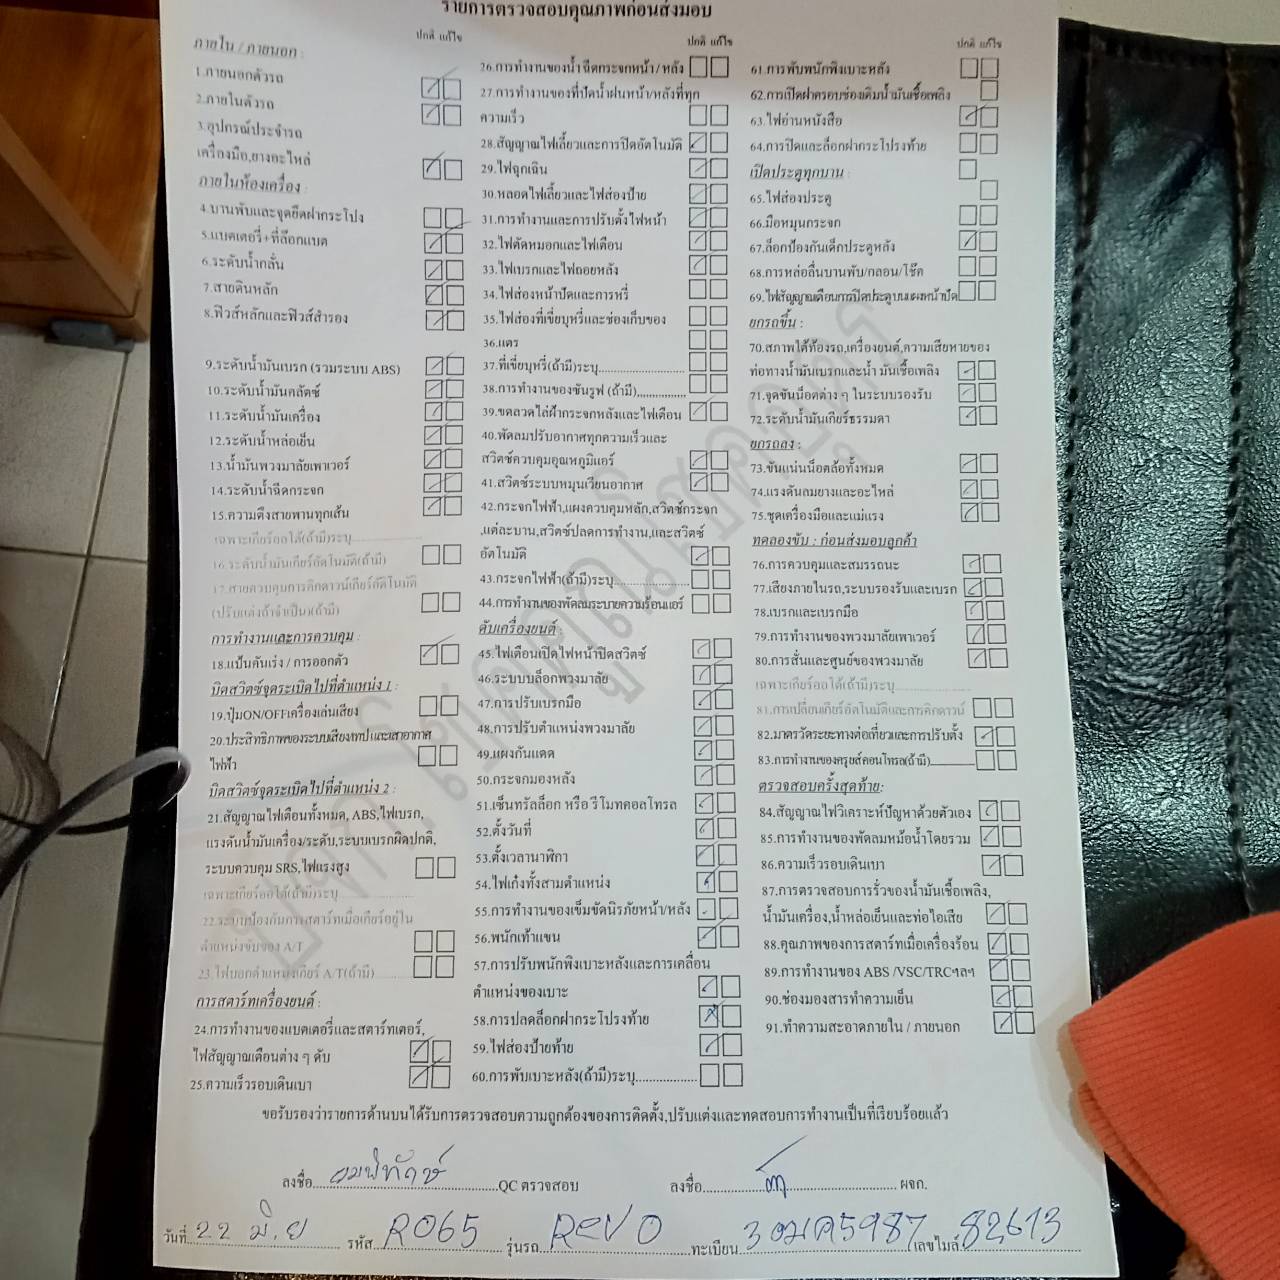 รายการตรวจสอบคุณภาพก่อนส่งมอบ
ปกติ แก้ไข
ภายใน / ภายนอก :
1.ภายนอกตัวรถ
2.ภายในตัวรถ
3.อุปกรณ์ประจำรถ
เครื่องมือ,ยางอะไหล่
ภายในห้องเครื่อง :
4.บานพับและจุดยึดฝากระโปง
5.แบตเตอรี่+ที่ล็อกแบต
6.ระดับน้ำกลั่น
7.สายดินหลัก
8.ฟิวส์หลักและฟิวส์สำรอง
9.ระดับน้ำมันเบรก (รวมระบบ ABS)
10.ระดับน้ำมันคลัตซ์
11.ระดับน้ำมันเครื่อง
12.ระดับน้ำหล่อเย็น
13.น้ำมันพวงมาลัยเพาเวอร์
14.ระดับน้ำฉีดกระจก
15.ความตึงสายพานทุกเส้น
เฉพาะเกียร์ออโต้(ถ้ามี)ระบุ
16.ระดับน้ำมันเกียร์อัตโนมัติ(ถ้ามี)
17.สายควบคุมการคิกดาวน์เกียร์อัตโนมัติ
(ปรับแต่งถ้าจำเป็น)(ถ้ามี)
การทำงานและการควบคุม :
18.แป้นคันเร่ง / การออกตัว
บิดสวิตซ์จุดระเบิดไปที่ตำแหน่ง 1 :
19.ปุ่มON/OFFเครื่องเล่นเสียง
20.ประสิทธิภาพของระบบเสียง/เทป และเสาอากาศ
ไฟฟ้า
บิดสวิตซ์จุดระเบิดไปที่ตำแหน่ง 2 :
21.สัญญาณไฟเตือนทั้งหมด, ABS,ไฟเบรก,
แรงดันน้ำมันเครื่อง/ระดับ,ระบบเบรกผิดปกติ,
ระบบควบคุม SRS,ไฟแรงสูง
เฉพาะเกียร์ออโต้(ถ้ามี)ระบุ
22.ระบบป้องกันการสตาร์ทเมื่อเกียร์อยู่ใน
ตำแหน่งขับของ A/T
23.ไฟบอกตำแหน่งเกียร์ A/T(ถ้ามี)
การสตาร์ทเครื่องยนต์ :
24.การทำงานของแบตเตอรี่และสตาร์ทเตอร์,
ไฟสัญญาณเตือนต่าง ๆ ดับ
25.ความเร็วรอบเดินเบา
ปกติ แก้ไข
26.การทำงานของน้ำฉีดกระจกหน้า / หลัง
27.การทำงานของที่ปัดน้ำฝนหน้า/หลังที่ทุก
ความเร็ว
28.สัญญาณไฟเลี้ยวและการปิดอัตโนมัติ
29.ไฟฉุกเฉิน
30.หลอดไฟเลี้ยวและไฟส่องป้าย
31.การทำงานและการปรับตั้งไฟหน้า
32.ไฟตัดหมอกและไฟเตือน
33.ไฟเบรกและไฟถอยหลัง
34.ไฟส่องหน้าปัดและการหรี่
35.ไฟส่องที่เขี่ยบุหรี่และช่องเก็บของ
36.แตร
37.ที่เขี่ยบุหรี่(ถ้ามี)ระบุ
38.การทำงานของซันรูฟ (ถ้ามี)
39.ขดลวดไล่ฝ้ากระจกหลังและไฟเตือน
40.พัดลมปรับอากาศทุกความเร็วและ
สวิตซ์ควบคุมอุณหภูมิแอร์
41.สวิตซ์ระบบหมุนเวียนอากาศ
42.กระจกไฟฟ้า,แผงควบคุมหลัก,สวิตซ์กระจก
,แต่ละบาน,สวิตซ์ปลดการทำงาน,และสวิตซ์
อัตโนมัติ
43.กระจกไฟฟ้า(ถ้ามี)ระบุ
44.การทำงานของพัดลมระบายความร้อนแอร์
ดับเครื่องยนต์ :
45.ไฟเตือนเปิดไฟหน้าปิดสวิตซ์
46.ระบบบล็อกพวงมาลัย
47.การปรับเบรกมือ
48.การปรับตำแหน่งพวงมาลัย
49.แผงกันแดด
50.กระจกมองหลัง
51.เซ็นทรัลล็อก หรือ รีโมทคอลโทรล
52.ตั้งวันที่
53.ตั้งเวลานาฬิกา
54.ไฟเก๋งทั้งสามตำแหน่ง
55.การทำงานของเข็มขัดนิรภัยหน้า/หลัง
56.พนักเท้าแขน
57.การปรับพนักพิงเบาะหลังและการเคลื่อน
ตำแหน่งของเบาะ
58.การปลดล็อกฝากระโปรงท้าย
59.ไฟส่องป้ายท้าย
60.การพับเบาะหลัง(ถ้ามี)ระบุ
ปกติ แก้ไข
61.การพับพนักพิงเบาะหลัง
62.การเปิดฝาครอบช่องเติมน้ำมันเชื้อเพลิง
63.ไฟอ่านหนังสือ
64.การปิดและล็อกฝากระโปรงท้าย
เปิดประตูทุกบาน :
65.ไฟส่องประตู
66.มือหมุนกระจก
67.ล็อกป้องกันเด็กประตูหลัง
68.การหล่อลื่นบานพับ/กลอน/โช๊ค
69.ไฟสัญญาณเตือนการปิดประตูบนแผงหน้าปัด
ยกรถขึ้น :
70.สภาพใต้ท้องรถ,เครื่องยนต์,ความเสียหายของ
ท่อทางน้ำมันเบรกและน้ำ มันเชื้อเพลิง
71.จุดขันน็อตต่าง ๆ ในระบบรองรับ
72.ระดับน้ำมันเกียร์ธรรมดา
ยกรถลง :
73.ขันแน่นน็อตล้อทั้งหมด
74.แรงดันลมยางและอะไหล่
75.ชุดเครื่องมือและแม่แรง
ทดลองขับ : ก่อนส่งมอบลูกค้า
76.การควบคุมและสมรรถนะ
77.เสียงภายในรถ,ระบบรองรับและเบรก
78.เบรกและเบรกมือ
79.การทำงานของพวงมาลัยเพาเวอร์
80.การสั่นและศูนย์ของพวงมาลัย
เฉพาะเกียร์ออโต้(ถ้ามี)ระบุ
81.การเปลี่ยนเกียร์อัตโนมัติและการคิกดาวน์
82.มาตรวัดระยะทางต่อเที่ยวและการปรับตั้ง
83.การทำงานของครุยส์คอนโทรล(ถ้ามี)
ตรวจสอบครั้งสุดท้าย:
84.สัญญาณไฟวิเคราะห์ปัญหาด้วยตัวเอง
85.การทำงานของพัดลมหม้อน้ำโดยรวม
86.ความเร็วรอบเดินเบา
87.การตรวจสอบการรั่วของน้ำมันเชื้อเพลิง,
น้ำมันเครื่อง,น้ำหล่อเย็นและท่อไอเสีย
88.คุณภาพของการสตาร์ทเมื่อเครื่องร้อน
89.การทำงานของ ABS /VSC/TRCฯลฯ
90.ช่องมองสารทำความเย็น
91.ทำความสะอาดภายใน / ภายนอก
ขอรับรองว่ารายการด้านบนได้รับการตรวจสอบความถูกต้องของการติดตั้ง,ปรับแต่งและทดสอบการทำงานเป็นที่เรียบร้อยแล้ว
ลงชื่อ QC ตรวจสอบ ลงชื่อ ผจก.
วันที่ 22 มิ.ย รหัส R065 รุ่นรถ REVO ทะเบียน 3ฒค5987 เลขไมล์ 82613